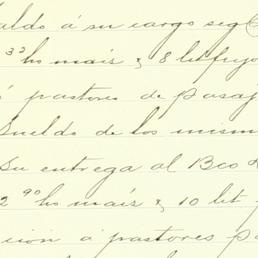 aldo á su cargo seg
33 ho maís y 8 lit frij
á pastores de pasa
Sueldo de los mism
Su entrega al Bco
2 90 ho maís y 10 lit
ción á pastores p